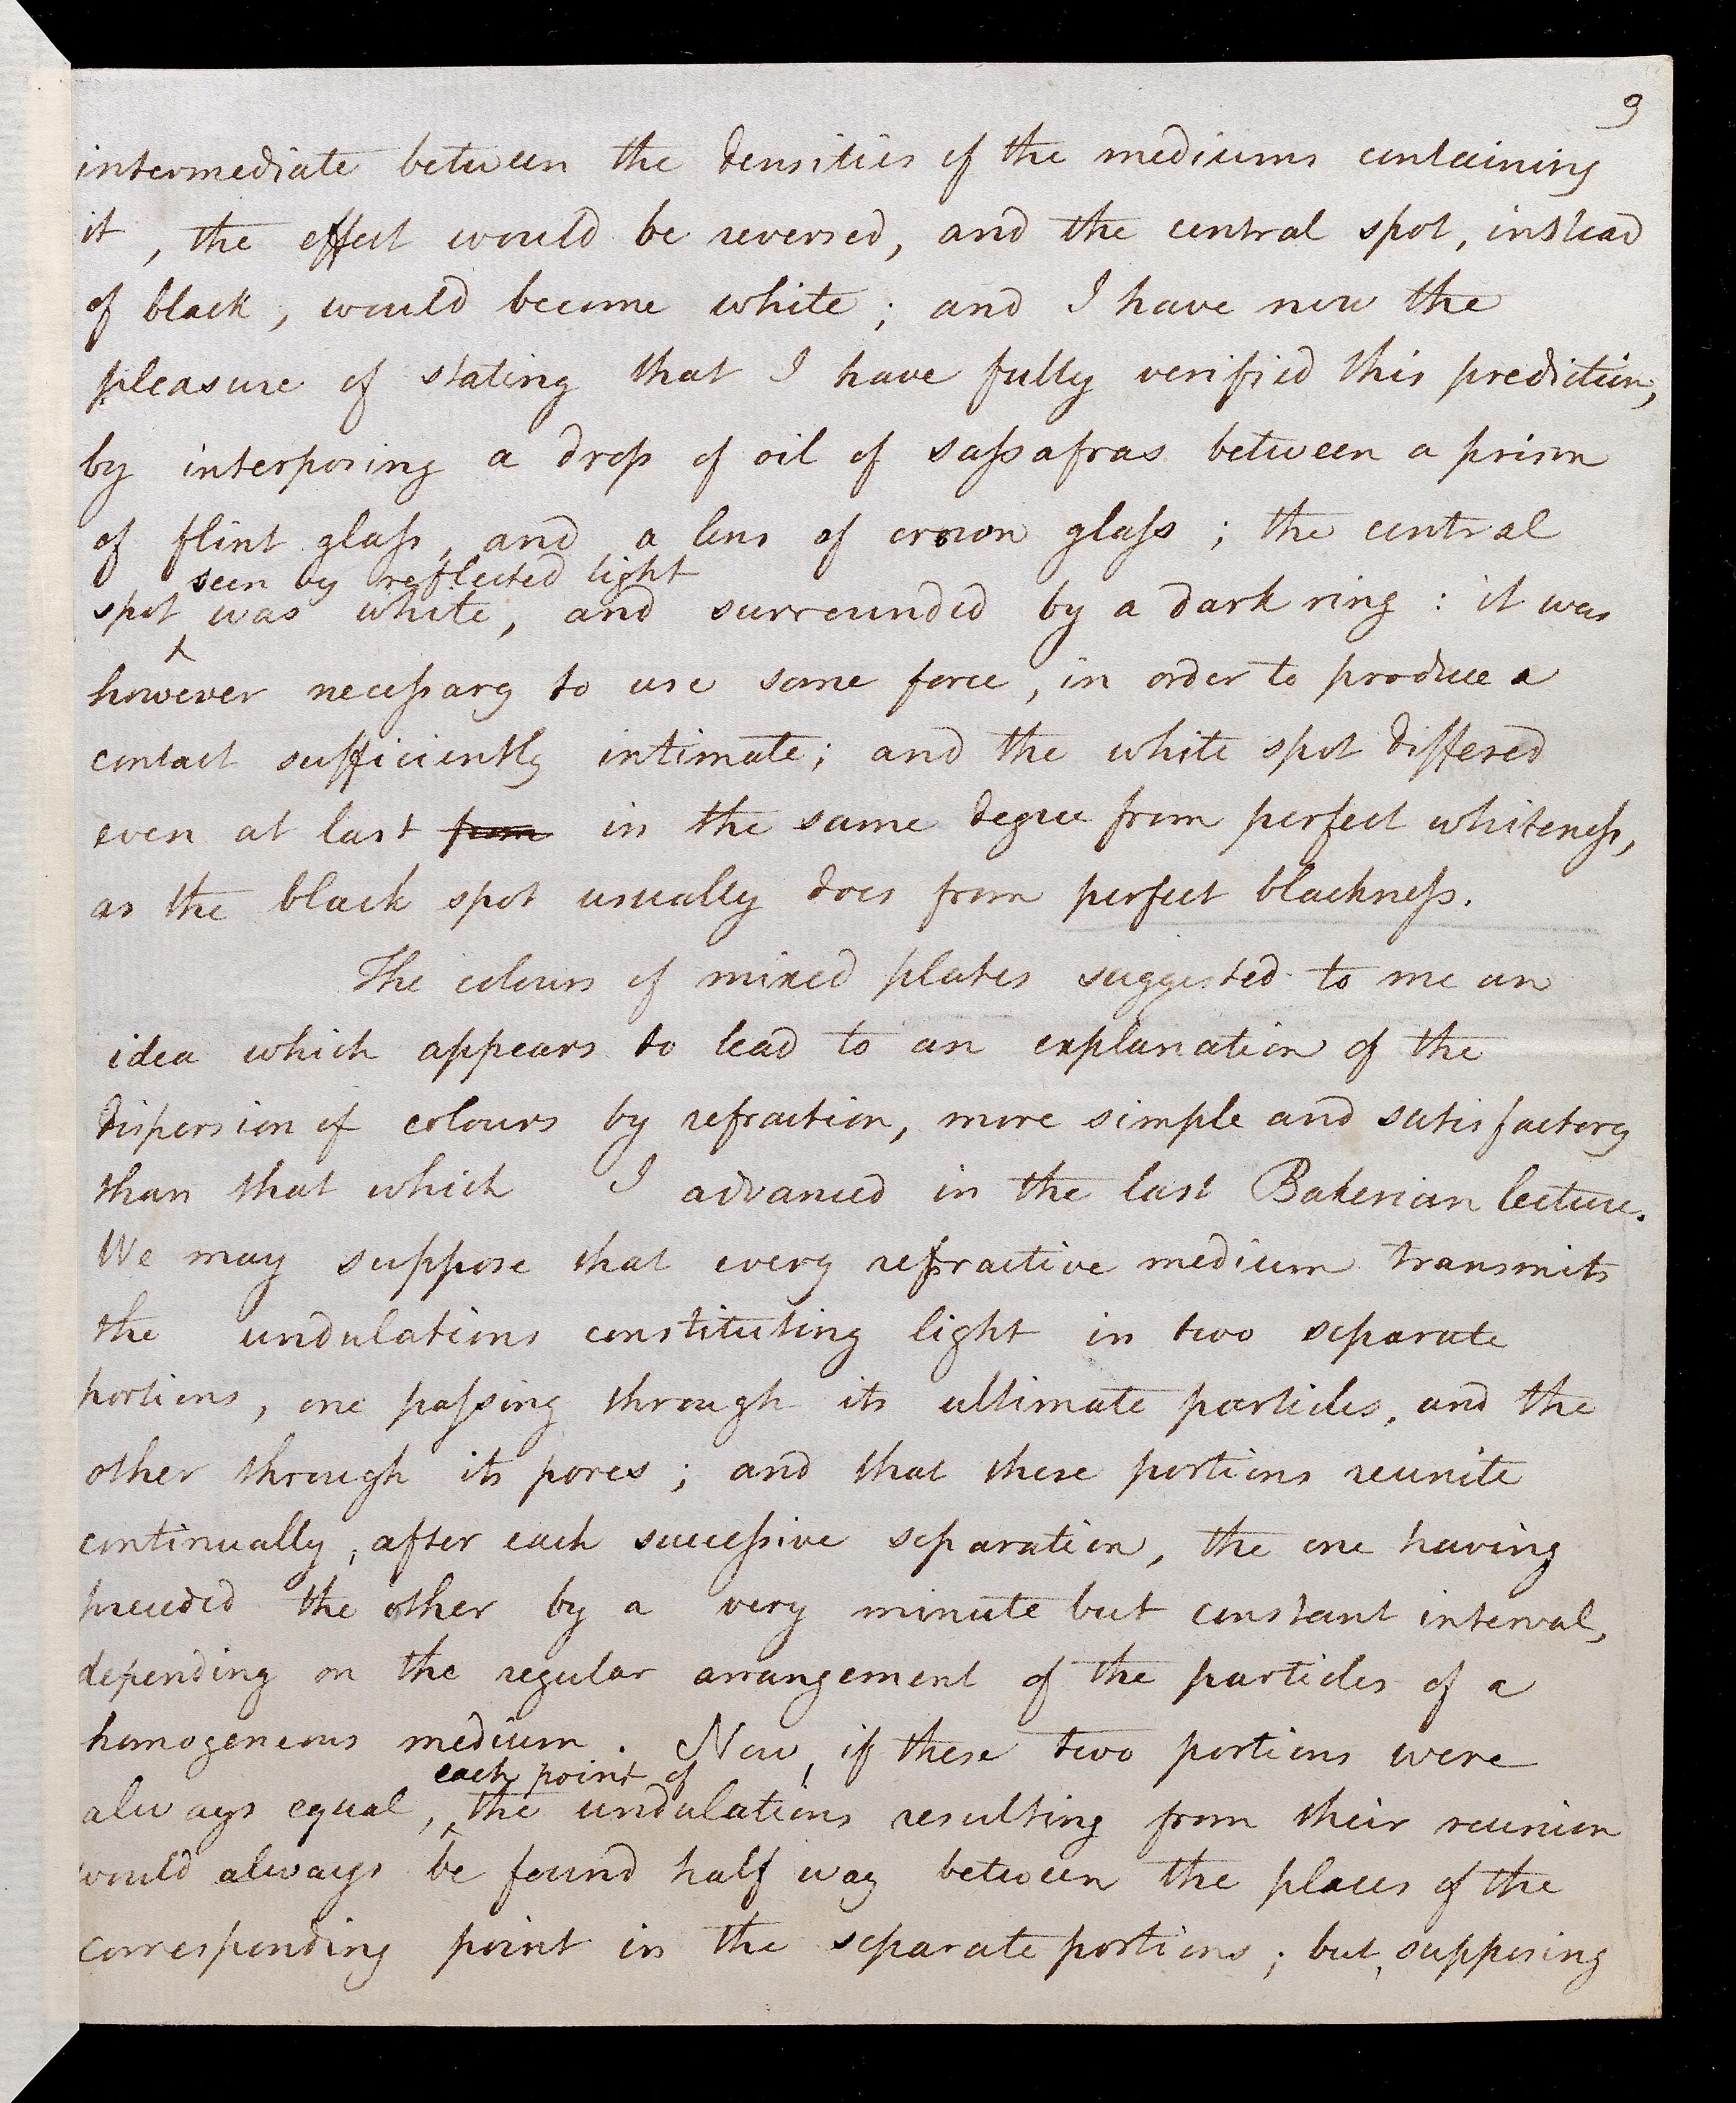 9
intermediate between the densities of the mediums containing
it, the effect would be reversed, and the central spot, instead
of black, would become white; and I have now the
pleasure of stating that I have fully verified this prediction,
by interposing a drop of oil of saſsafras between a prism
of flint glaſs, and a lens of crown glaſs; the central
seen by reflected light
spot was white, and surrounded by a dark ring: it was
however neceſsary to use some force, in order to produce a
contact sufficiently intimate; and the white spot differed
even at last from in the same degree from perfect whiteneſs,
as the black spot usually does from perfect blackneſs.
The colours of mixed plates suggested to me an
idea which appears to lead to an explanation of the
dispersion of colours by refraction, more simple and satisfactory
than that which I advanced in the last Bakerian lecture.
We may suppose that every refractive medium transmits
the undulations constituting light in two separate
portions, one paſsing through its ultimate particles, and the
other through its pores; and that these portions reunite
continually, after each succeſsive separation, the one having
preceded the other by a very minute but constant interval,
depending on the regular arrangement of the particles of a
homogeneous medium. Now, if these two portions were
each point of
always equal, the undulations resulting from their reunion
would always be found half way between the places of the
corresponding point in the separate portions; but, supposing